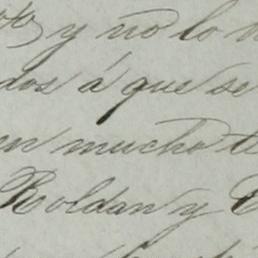 y no lo
dos á que se
en mucho te
Roldan y